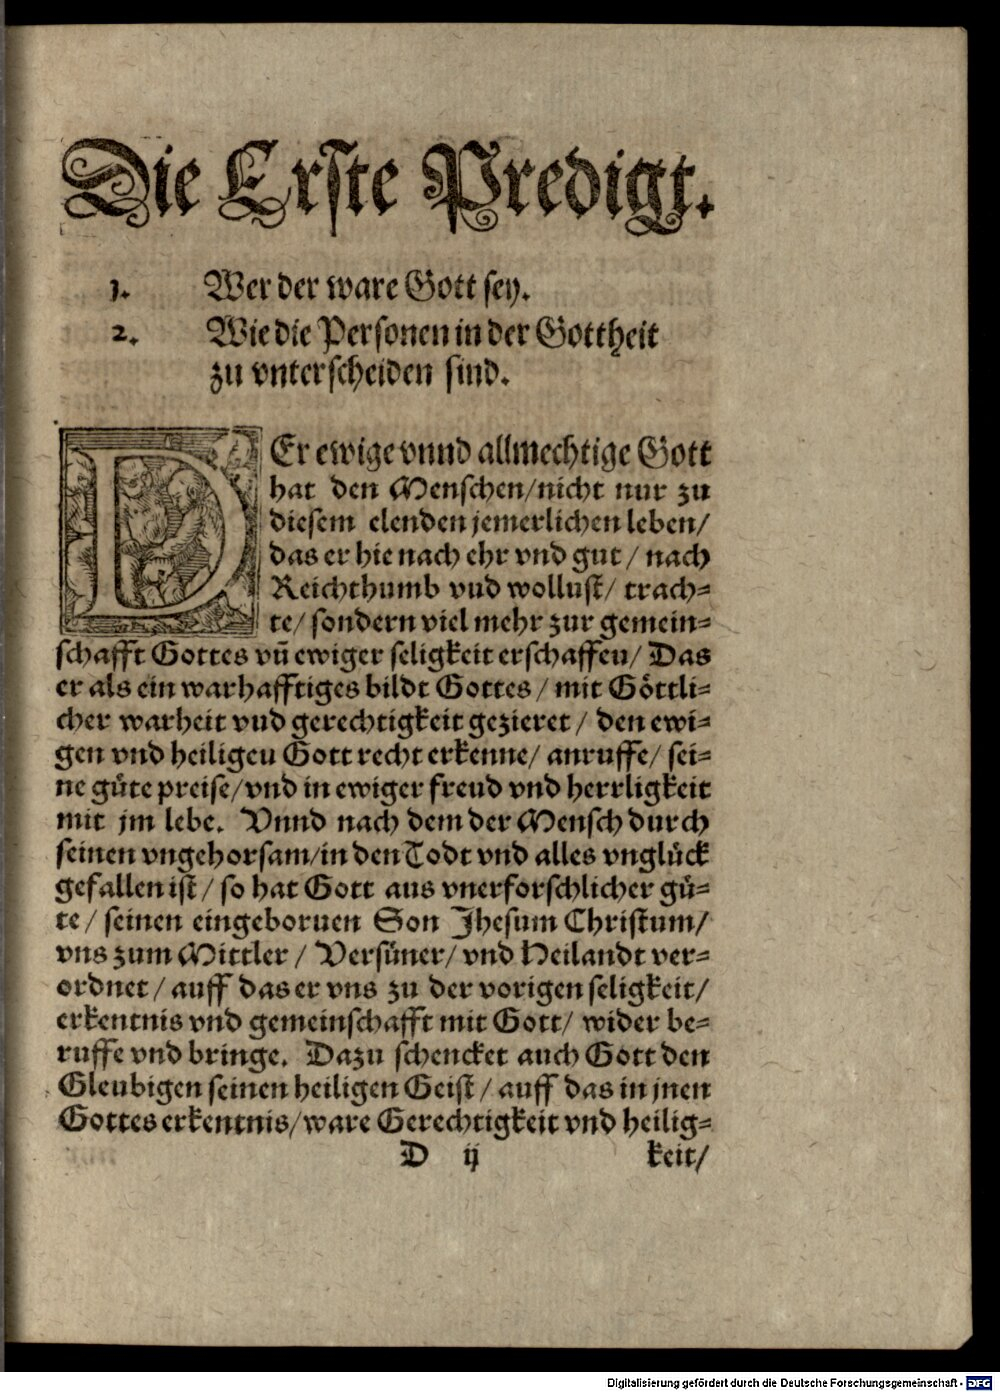 Die Erste Predigt.
1. Wer der ware Gott sey.
2. Wie die Personen in der Gottheit
zu vnterscheiden sind.
DEr ewige vnnd allmechtige Gott
hat den Menschen/nicht nur zu
diesem elenden jemerlichen leben/
das er hie nach ehr vnd gut/ nach
Reichthumb vnd wollust/ trach-
te/ sondern viel mehr zur gemein-
schafft Gottes vñ ewiger seligkeit erschaffen/ Das
er als ein warhafftiges bildt Gottes/ mit Göttli-
cher warheit vnd gerechtigkeit gezieret/ den ewi-
gen vnd heiligen Gott recht erkenne/ anruffe/ sei-
ne güte preise/vnd in ewiger freud vnd herrligkeit
mit jm lebe. Vnnd nach dem der Mensch durch
seinen vngehorsam/in den Todt vnd alles vnglück
gefallen ist/ so hat Gott aus vnerforschlicher gü-
te/ seinen eingebornen Son Jhesum Christum/
vns zum Mittler/ Versüner/ vnd Heilandt ver-
ordnet/ auff das er vns zu der vorigen seligkeit/
erkentnis vnd gemeinschafft mit Gott/ wider be-
ruffe vnd bringe. Dazu schencket auch Gott den
Gleubigen seinen heiligen Geist/ auff das in jnen
Gottes erkentnis/ware Gerechtigkeit vnd heilig-
D ij keit/
Digitalisierung gefördert durch die Deutsche Forschungsgemeinschaft - DFG